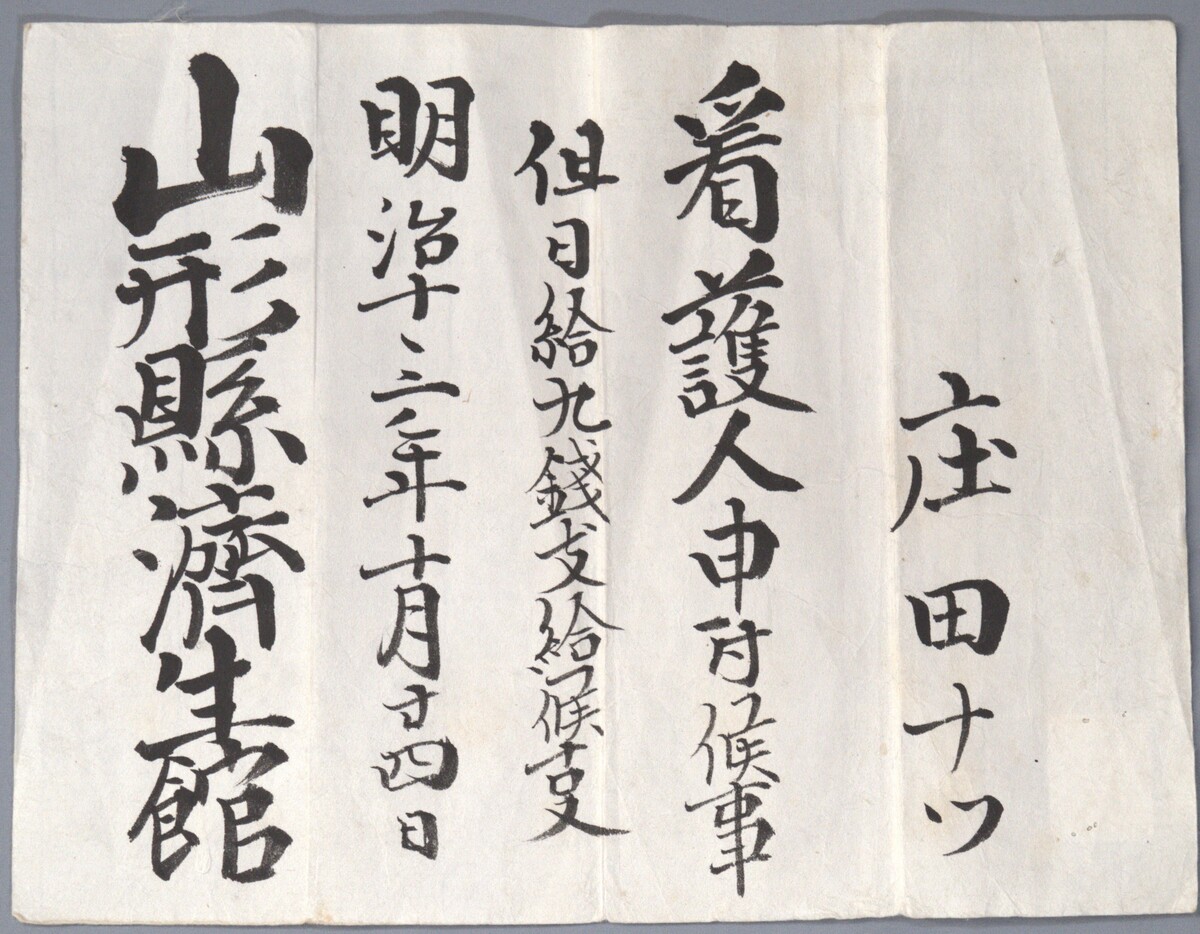 庄田ナツ
看護人申付候事
但日給九錢支給候叓
明治十三年十月廿四日
山形縣濟生館